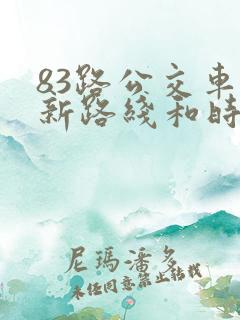 83路公交车
新路线和时
尼玛潘多
未经同意禁止转载